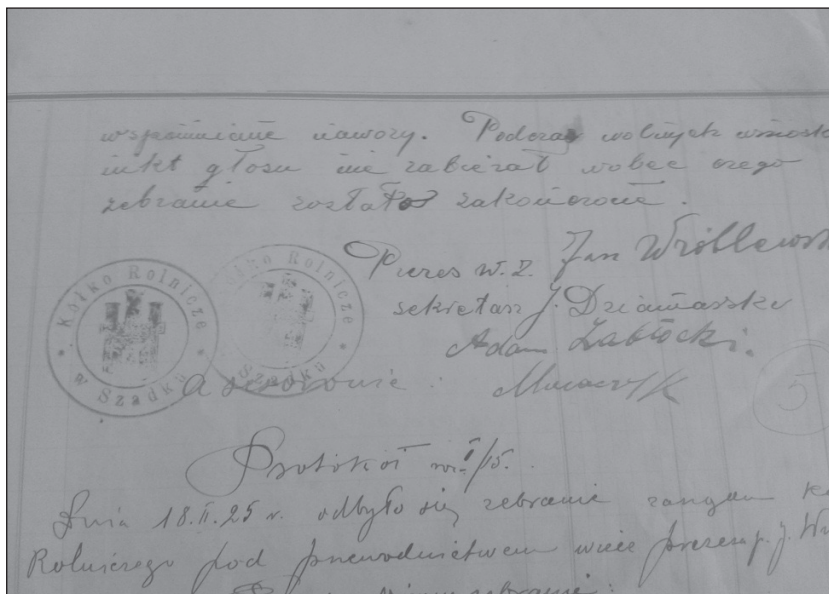 wspomniane nawozy. Podczas wolnych wniosk
nikt głosu nie zabierał wobec czego
zebranie zostało zakończone.
Prezes w. z. Jan Wróblewsk
sekretarz J.
Adam Zabłocki.
Kółko Rolnicze
w Szadku
Kółko Rolnicze
Szadku
5
Protokół nr. I/15.
Dnia 18.II.25 r. odbyło się zebranie zarządu
Rolniczego pod przewodnictwem wice prezesa p. J. Wr
zebranie: